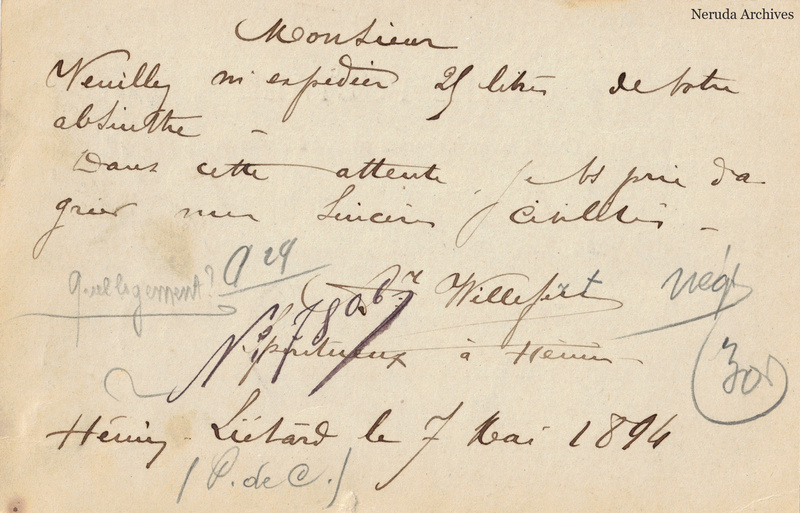 Neruda Archives
Monsieur
Veuillez m'expédier 25 litres de votre
absinthe –
Dans cette attente, je vs prie d'a
gréer mes sincères civilités –
Quel logement?
Willefert nég
Spiritueux à Hénin
30
Hénin-Liétard le 7 Mai 1894
(P. de C.)